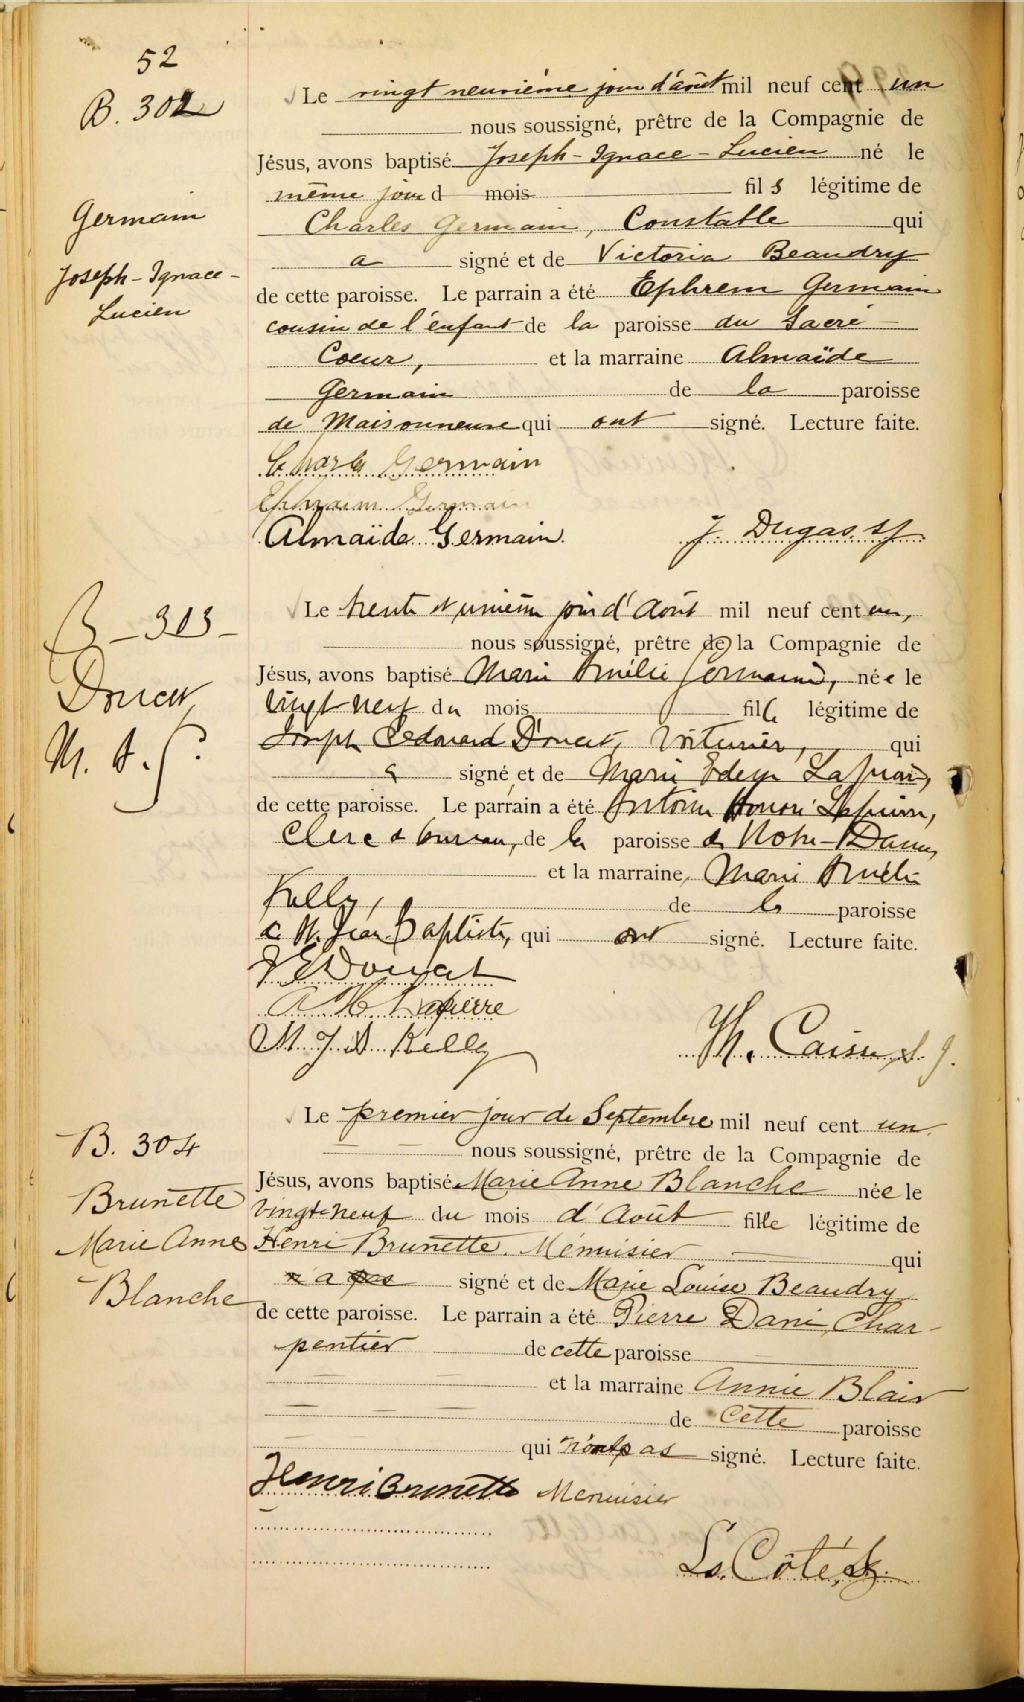 52
B. 302
Germain
Joseph-Ignace-
Lucien
Le vingt neuvième jour d'août mil neuf cent un
nous soussigné, prêtre de la Compagnie de
Jésus, avons baptisé Joseph-Ignace-Lucien né le
même jour d mois fils légitime de
Charles Germain, Constable qui
a signé et de Victoria Beaudry
de cette paroisse. Le parrain a été Ephrem Germain
cousin de l'enfant de la paroisse du Sacré
Coeur, et la marraine Almaïde
Germain de la paroisse
de Maisonneuve qui ont signé. Lecture faite.
Charles Germain
Ephraim Germain
Almaïda Germain.
J. Dugas SJ
B-303-
Doucet,
M. A. G.
Le trente et unième jour d'Août mil neuf cent un,
nous soussigné, prêtre de la Compagnie de
Jésus, avons baptisé Marie Amélie Germaine, née le
vingt-neuf du mois fille légitime de
Joseph Edouard Doucet, Voiturier, qui
a signé et de Marie
de cette paroisse. Le parrain a été Antoine Honoré Lapierre,
Clerc de bureau, de la paroisse de Notre-Dame,
et la marraine, Marie Amélie
Kelly, de la paroisse
St. Jean Baptiste, qui ont signé. Lecture faite.
J E Doucet
A H. Lapierre
M J A Kelly
Th. s. j.
B. 304
Brunette
Marie Anne
Blanche
Le premier jour de Septembre mil neuf cent un
nous soussigné, prêtre de la Compagnie de
Jésus, avons baptisé Marie Anne Blanche née le
vingt-neuf du mois d'Août fille légitime de
Henri Brunette. Ménuisier qui
n'a pas signé et de Marie Louise Beaudry
de cette paroisse. Le parrain a été Pierre Dani, Char-
pentier de cette paroisse
et la marraine Annie Blair
de cette paroisse
qui n'ont pas signé. Lecture faite.
Henri Brunette Menuisier
Ls. Côté, sj.